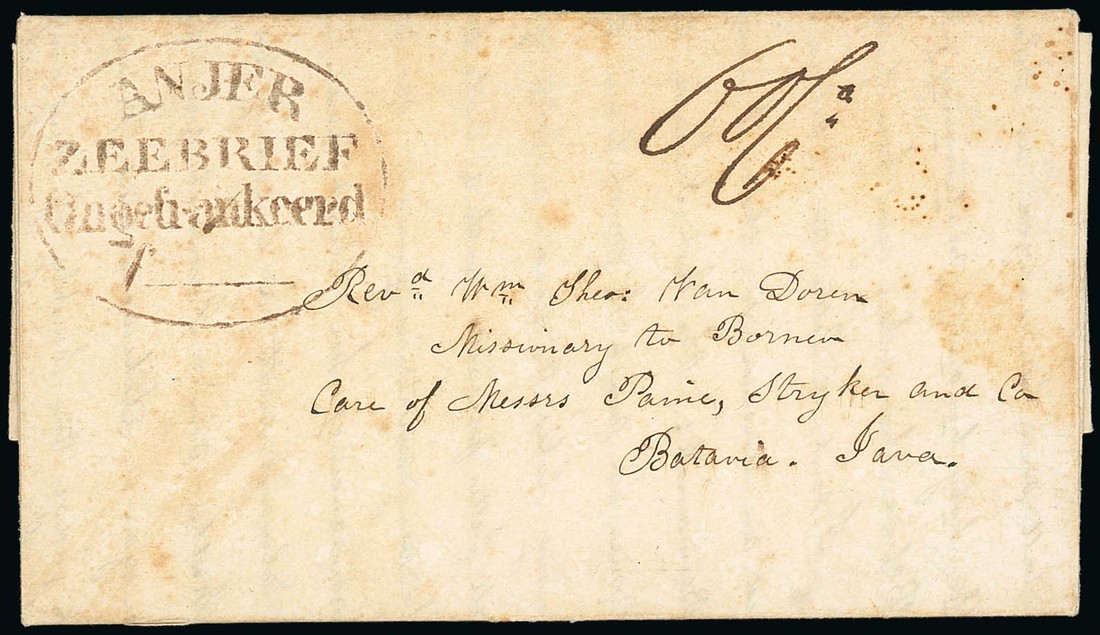 ANJER
ZEEBRIEF
Ongefrankeerd
f
Revd Wm Theo: Van Doren
Missionary to Borneo
Care of Messrs Paine, Stryker and Co
Batavia. Java.